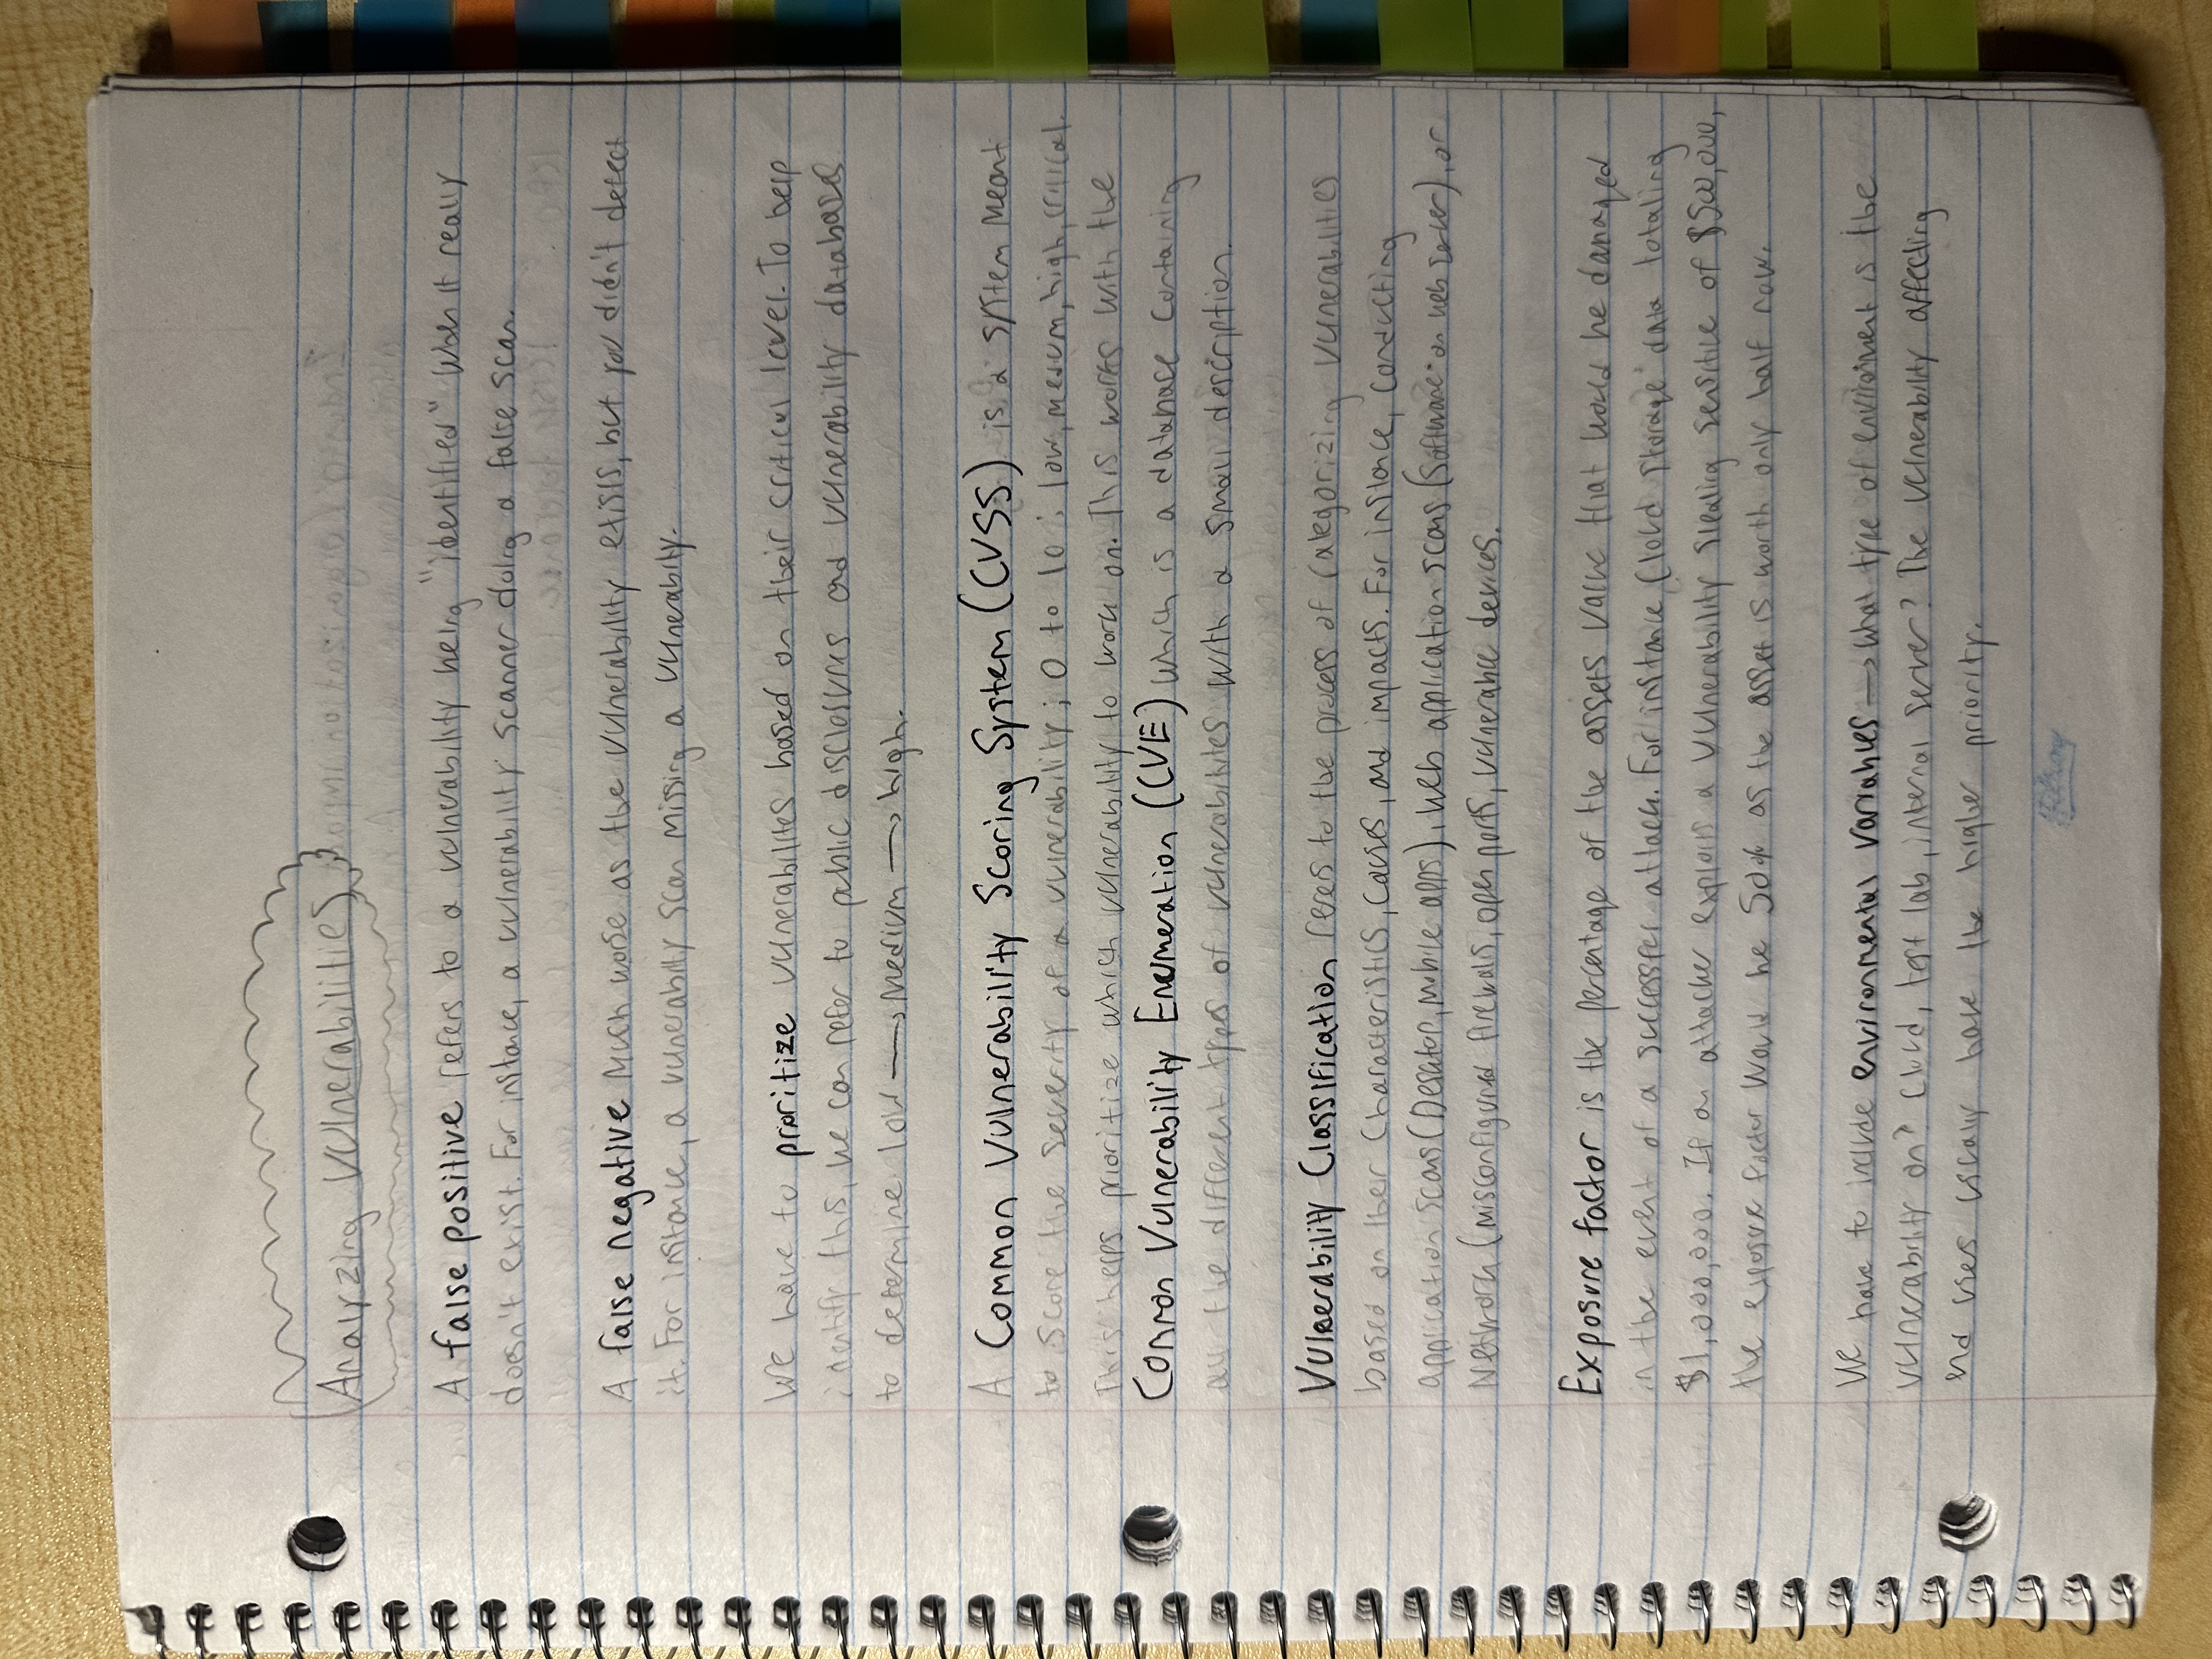 Analyzing Vulnerabilities
A false positive refers to a vulnerability being "identified" when it really
doesn't exist. For instance, a vulnerability scanner doing a false scan.
A false negative much worse as the vulnerability exists, but you didn't detect
it. For instance, a vunerability scan missing a vunerabity.
We have to prioritize vulnerabilites based on their critical level. To help
identify this, we can refer to public disclosures and vulnerability databases
to determine low → medium → high.
A Common Vulnerability Scoring System (CVSS) is a system meant
to score the severity of a vulnerability; 0 to 10: low, medium, high, critical.
This helps prioritize which vulnerability to work on. This works with the
Common Vulnerability Enumeration (CVE) which is a database containing
all the different types of vulnerabilities with a small description.
Vulnerability Classification refers to the process of categorizing vulnerabilities
based on their characteristics, causes, and impacts. For instance, conducting
application scans (Desktop, mobile apps), web application scans (software on web server), or
Network (misconfigured firewalls, open ports, vulnerable devices.
Exposure factor is the percentage of the assets value that would be damaged
in the event of a successful attack. For instance cloud storage data totaling
$1,000,000. If an attacker exploits a vulnerability stealing sensitive of $500,000,
the exposure factor would be 50% as the asset is worth only half now.
We have to include environmental variables → what type of enviroment is the
vulnerability on? Cloud, test lab, internal server? The vulnerability affecting
end users usually have the higher priority.
Hilroy